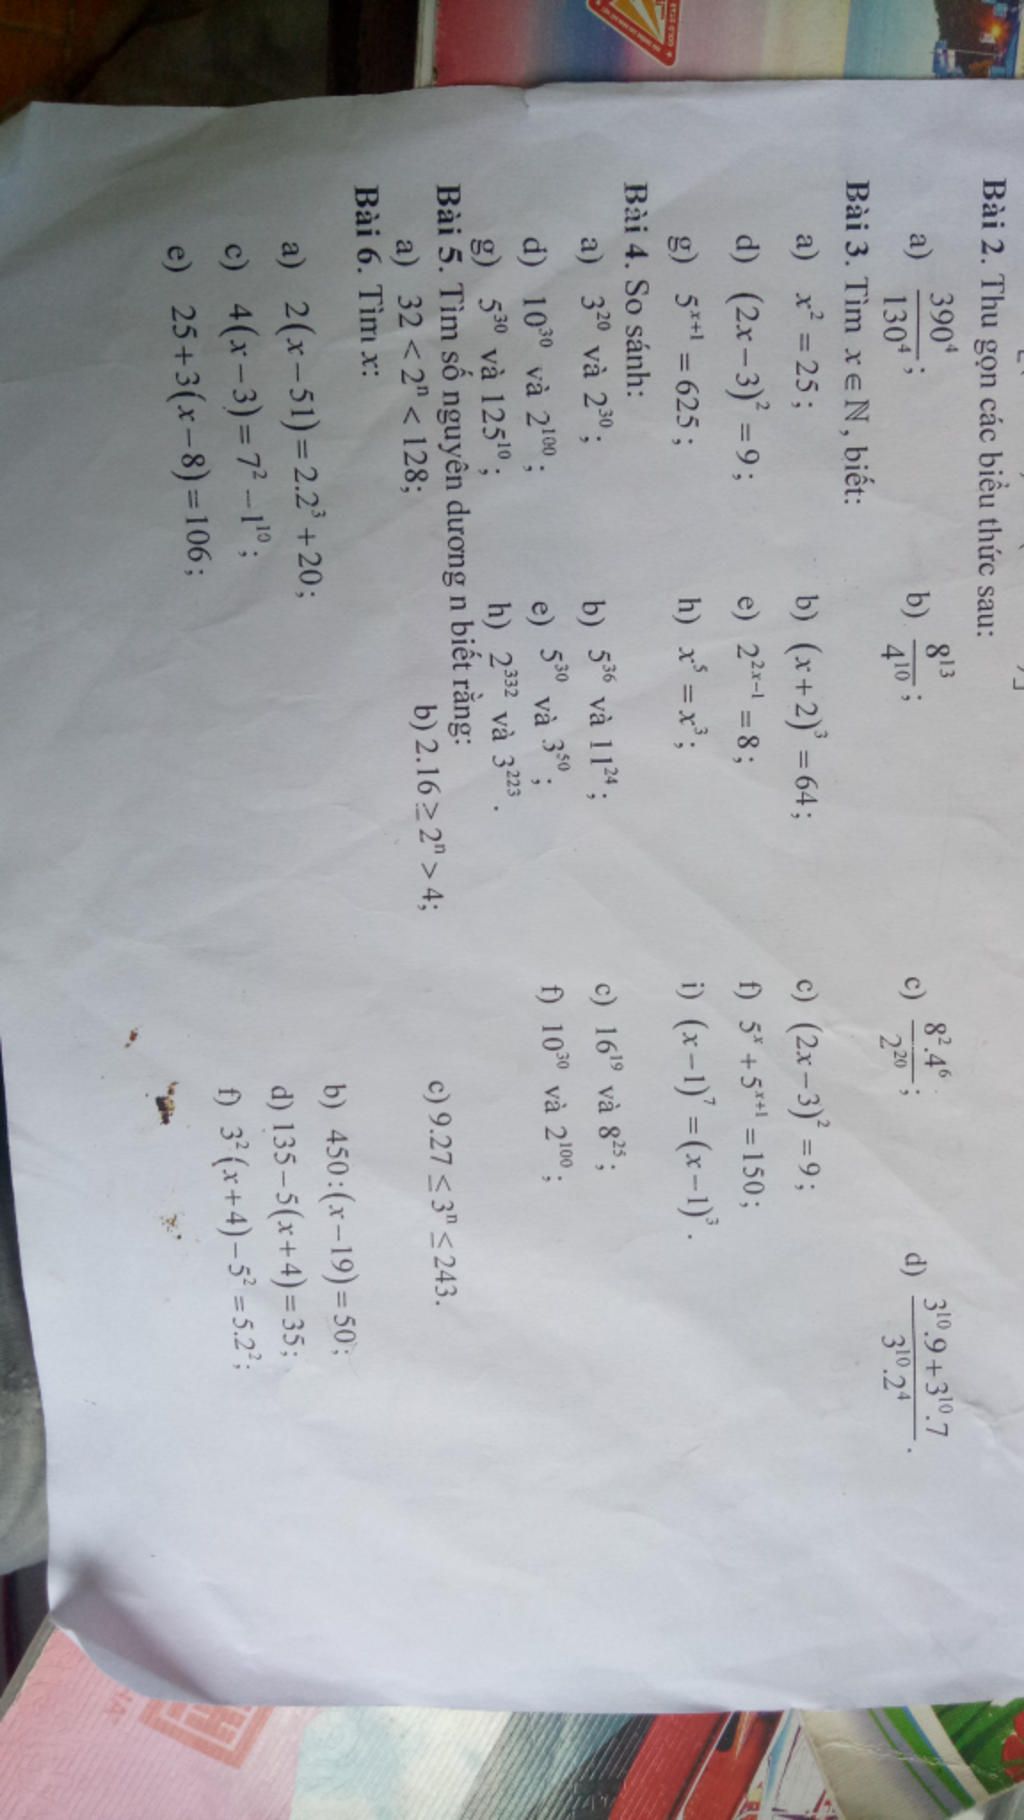 Bài 2. Thu gọn các biểu thức sau:
a) 390⁴/130⁴; b) 8¹³/4¹⁰; c) 8².4⁶/2²⁰; d) (3¹⁰.9+3¹⁰.7)/(3¹⁰.2⁴).
Bài 3. Tìm x∈ℕ, biết:
a) x² = 25; b) (x+2)³ = 64; c) (2x−3)² = 9;
d) (2x−3)² = 9; e) 2²ˣ⁻¹ = 8; f) 5ˣ + 5ˣ⁺¹ = 150;
g) 5ˣ⁺¹ = 625; h) x⁵ = x³; i) (x−1)⁷ = (x−1)³.
Bài 4. So sánh:
a) 3²⁰ và 2³⁰; b) 5³⁶ và 11²⁴; c) 16¹⁹ và 8²⁵;
d) 10³⁰ và 2¹⁰⁰; e) 5³⁰ và 3⁵⁰; f) 10³⁰ và 2¹⁰⁰;
g) 5³⁰ và 125¹⁰; h) 2³³² và 3²²³.
Bài 5. Tìm số nguyên dương n biết rằng:
a) 32 < 2ⁿ < 128; b) 2.16 ≥ 2ⁿ > 4; c) 9.27 ≤ 3ⁿ ≤ 243.
Bài 6. Tìm x:
a) 2(x−51) = 2.2³ + 20; b) 450:(x−19) = 50;
c) 4(x−3) = 7² − 1¹⁰; d) 135−5(x+4) = 35;
e) 25+3(x−8) = 106; f) 3²(x+4)−5² = 5.2²;